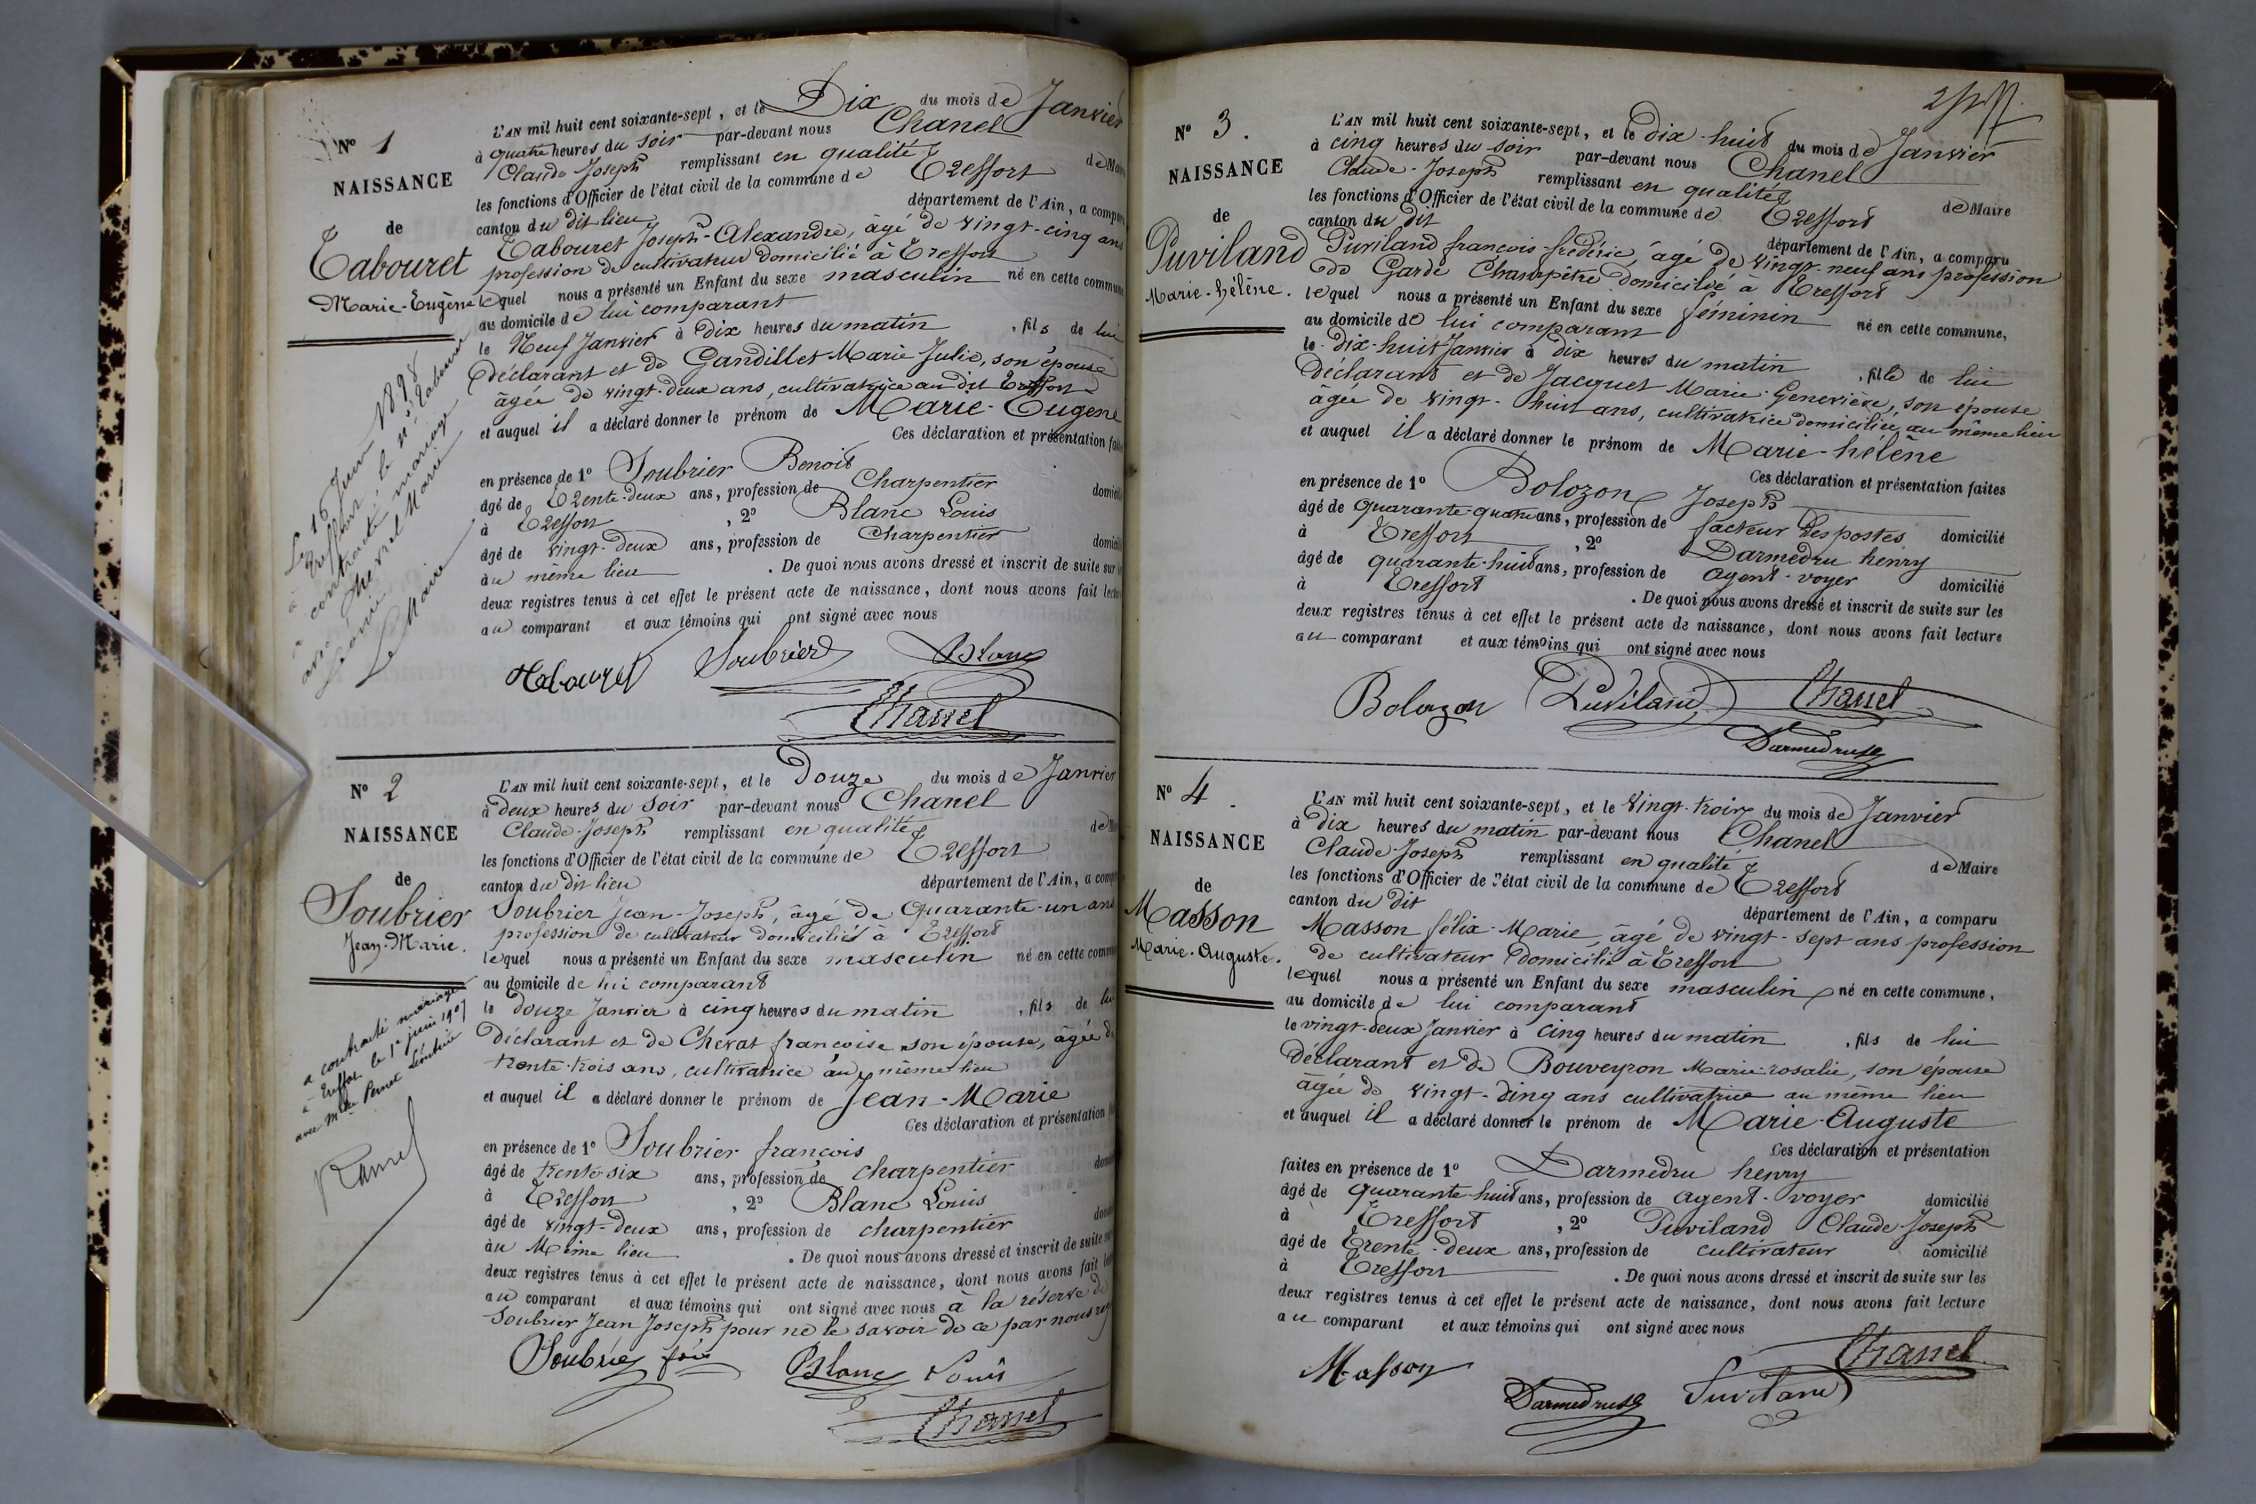 N° 1
NAISSANCE
de
Tabouret
Marie-Eugène
Le 16 Juin 1898
à Treffort le né Tabouret
a contracté mariage
avec Chevrel Marie
Léonie
Le Maire
L'AN mil huit cent soixante-sept, et le Dix du mois de Janvier
à quatre heures du soir par-devant nous Chanel
Claude Joseph remplissant en qualité de Maire
les fonctions d'Officier de l'état civil de la commune de Treffort
canton du dit lieu département de l'Ain, a comparu
Tabouret Joseph-Alexandre, âgé de vingt-cinq ans
profession de cultivateur domicilié à Treffort
lequel nous a présenté un Enfant du sexe masculin né en cette commune
au domicile de lui comparant
le Neuf Janvier à Dix heures du matin , fils de lui
Déclarant et de Gandillet Marie Julie, son épouse
âgée de vingt-deux ans, cultivatrice au dit Treffort
et auquel il a déclaré donner le prénom de Marie-Eugène
Ces déclaration et présentation faites
en présence de 1° Soubrier Benoit
âgé de Trente-deux ans, profession de Charpentier
à Treffort , 2° Blanc Louis
âgé de vingt-deux ans, profession de Charpentier
au même lieu . De quoi nous avons dressé et inscrit de suite sur
deux registres tenus à cet effet le présent acte de naissance, dont nous avons fait lecture
au comparant et aux témoins qui ont signé avec nous
Tabouret Soubrier Blanc
Chanel
N° 2
NAISSANCE
de
Soubrier
Jean-Marie.
a contracté mariage
à Treffort le 1er juin 1907
avec Mlle Pernet Léontine
L'AN mil huit cent soixante-sept, et le Douze du mois de Janvier
à deux heures du soir par-devant nous Chanel
Claude-Joseph remplissant en qualité de
les fonctions d'Officier de l'état civil de la commune de Treffort
canton du dit lieu département de l'Ain, a
Soubrier Jean-Joseph, âgé de Quarante-un ans
profession de cultivateur domicilié à Treffort
lequel nous a présenté un Enfant du sexe masculin né en cette
au domicile de lui comparant
le Douze Janvier à cinq heures du matin , fils de lui
Déclarant et de Chevat françoise son épouse, âgée de
trente-trois ans, cultivatrice au même lieu
et auquel il a déclaré donner le prénom de Jean-Marie
Ces déclaration et présentation
en présence de 1° Soubrier françois
âgé de trente-six ans, profession de charpentier
à Treffort , 2° Blanc Louis
âgé de vingt-deux ans, profession de charpentier
au Même lieu . De quoi nous avons dressé et inscrit de suite sur
deux registres tenus à cet effet le présent acte de naissance, dont nous avons fait
au comparant et aux témoins qui ont signé avec nous à la réserve de
Soubrier Jean Joseph pour ne le savoir de ce par nous
Soubrier Blanc Louis
Chanel
N° 3.
NAISSANCE
de
Puviland
Marie-hélène.
L'AN mil huit cent soixante-sept, et le Dix-huit du mois de Janvier
à cinq heures du soir par-devant nous Chanel
Claude-Joseph remplissant en qualité de Maire
les fonctions d'Officier de l'état civil de la commune de Treffort
canton du dit département de l'Ain, a comparu
Puviland françois-frédéric, âgé de vingt-neuf ans profession
de Garde Champêtre domicilié à Treffort
lequel nous a présenté un Enfant du sexe féminin né en cette commune,
au domicile de lui comparant
le dix-huit Janvier à dix heures du matin , fille de lui
Déclarant et de Jacquet Marie-Geneviève, son épouse
âgée de vingt-huit ans, cultivatrice domiciliée au même lieu
et auquel il a déclaré donner le prénom de Marie-hélène
Ces déclaration et présentation faites
en présence de 1° Bolozon Joseph
âgé de quarante-quatre ans, profession de facteur Des postes domicilié
à Treffort , 2° Darmedru henry
âgé de quarante-huit ans, profession de agent-voyer domicilié
à Treffort . De quoi nous avons dressé et inscrit de suite sur les
deux registres tenus à cet effet le présent acte de naissance, dont nous avons fait lecture
au comparant et aux témoins qui ont signé avec nous
Bolozon Puviland Chanel
Darmedru
N° 4.
NAISSANCE
de
Masson
Marie-Auguste.
L'AN mil huit cent soixante-sept, et le Vingt-trois du mois de Janvier
à dix heures du matin par-devant nous Chanel
Claude-Joseph remplissant en qualité de Maire
les fonctions d'Officier de l'état civil de la commune de Treffort
canton du dit département de l'Ain, a comparu
Masson félix-Marie, âgé de vingt-sept ans profession
de cultivateur domicilié à Treffort
lequel nous a présenté un Enfant du sexe masculin né en cette commune,
au domicile de lui comparant
le vingt-deux Janvier à cinq heures du matin , fils de lui
Déclarant et de Bouveyron Marie-rosalie, son épouse
âgée de vingt-cinq ans cultivatrice au même lieu
et auquel il a déclaré donner le prénom de Marie-Auguste
Ces déclaration et présentation
faites en présence de 1° Darmedru henry
âgé de quarante-huit ans, profession de agent-voyer domicilié
à Treffort , 2° Puviland Claude-Joseph
âgé de Trente-deux ans, profession de cultivateur domicilié
à Treffort . De quoi nous avons dressé et inscrit de suite sur les
deux registres tenus à cet effet le présent acte de naissance, dont nous avons fait lecture
au comparant et aux témoins qui ont signé avec nous
Chanel
Masson
Darmedru Puviland